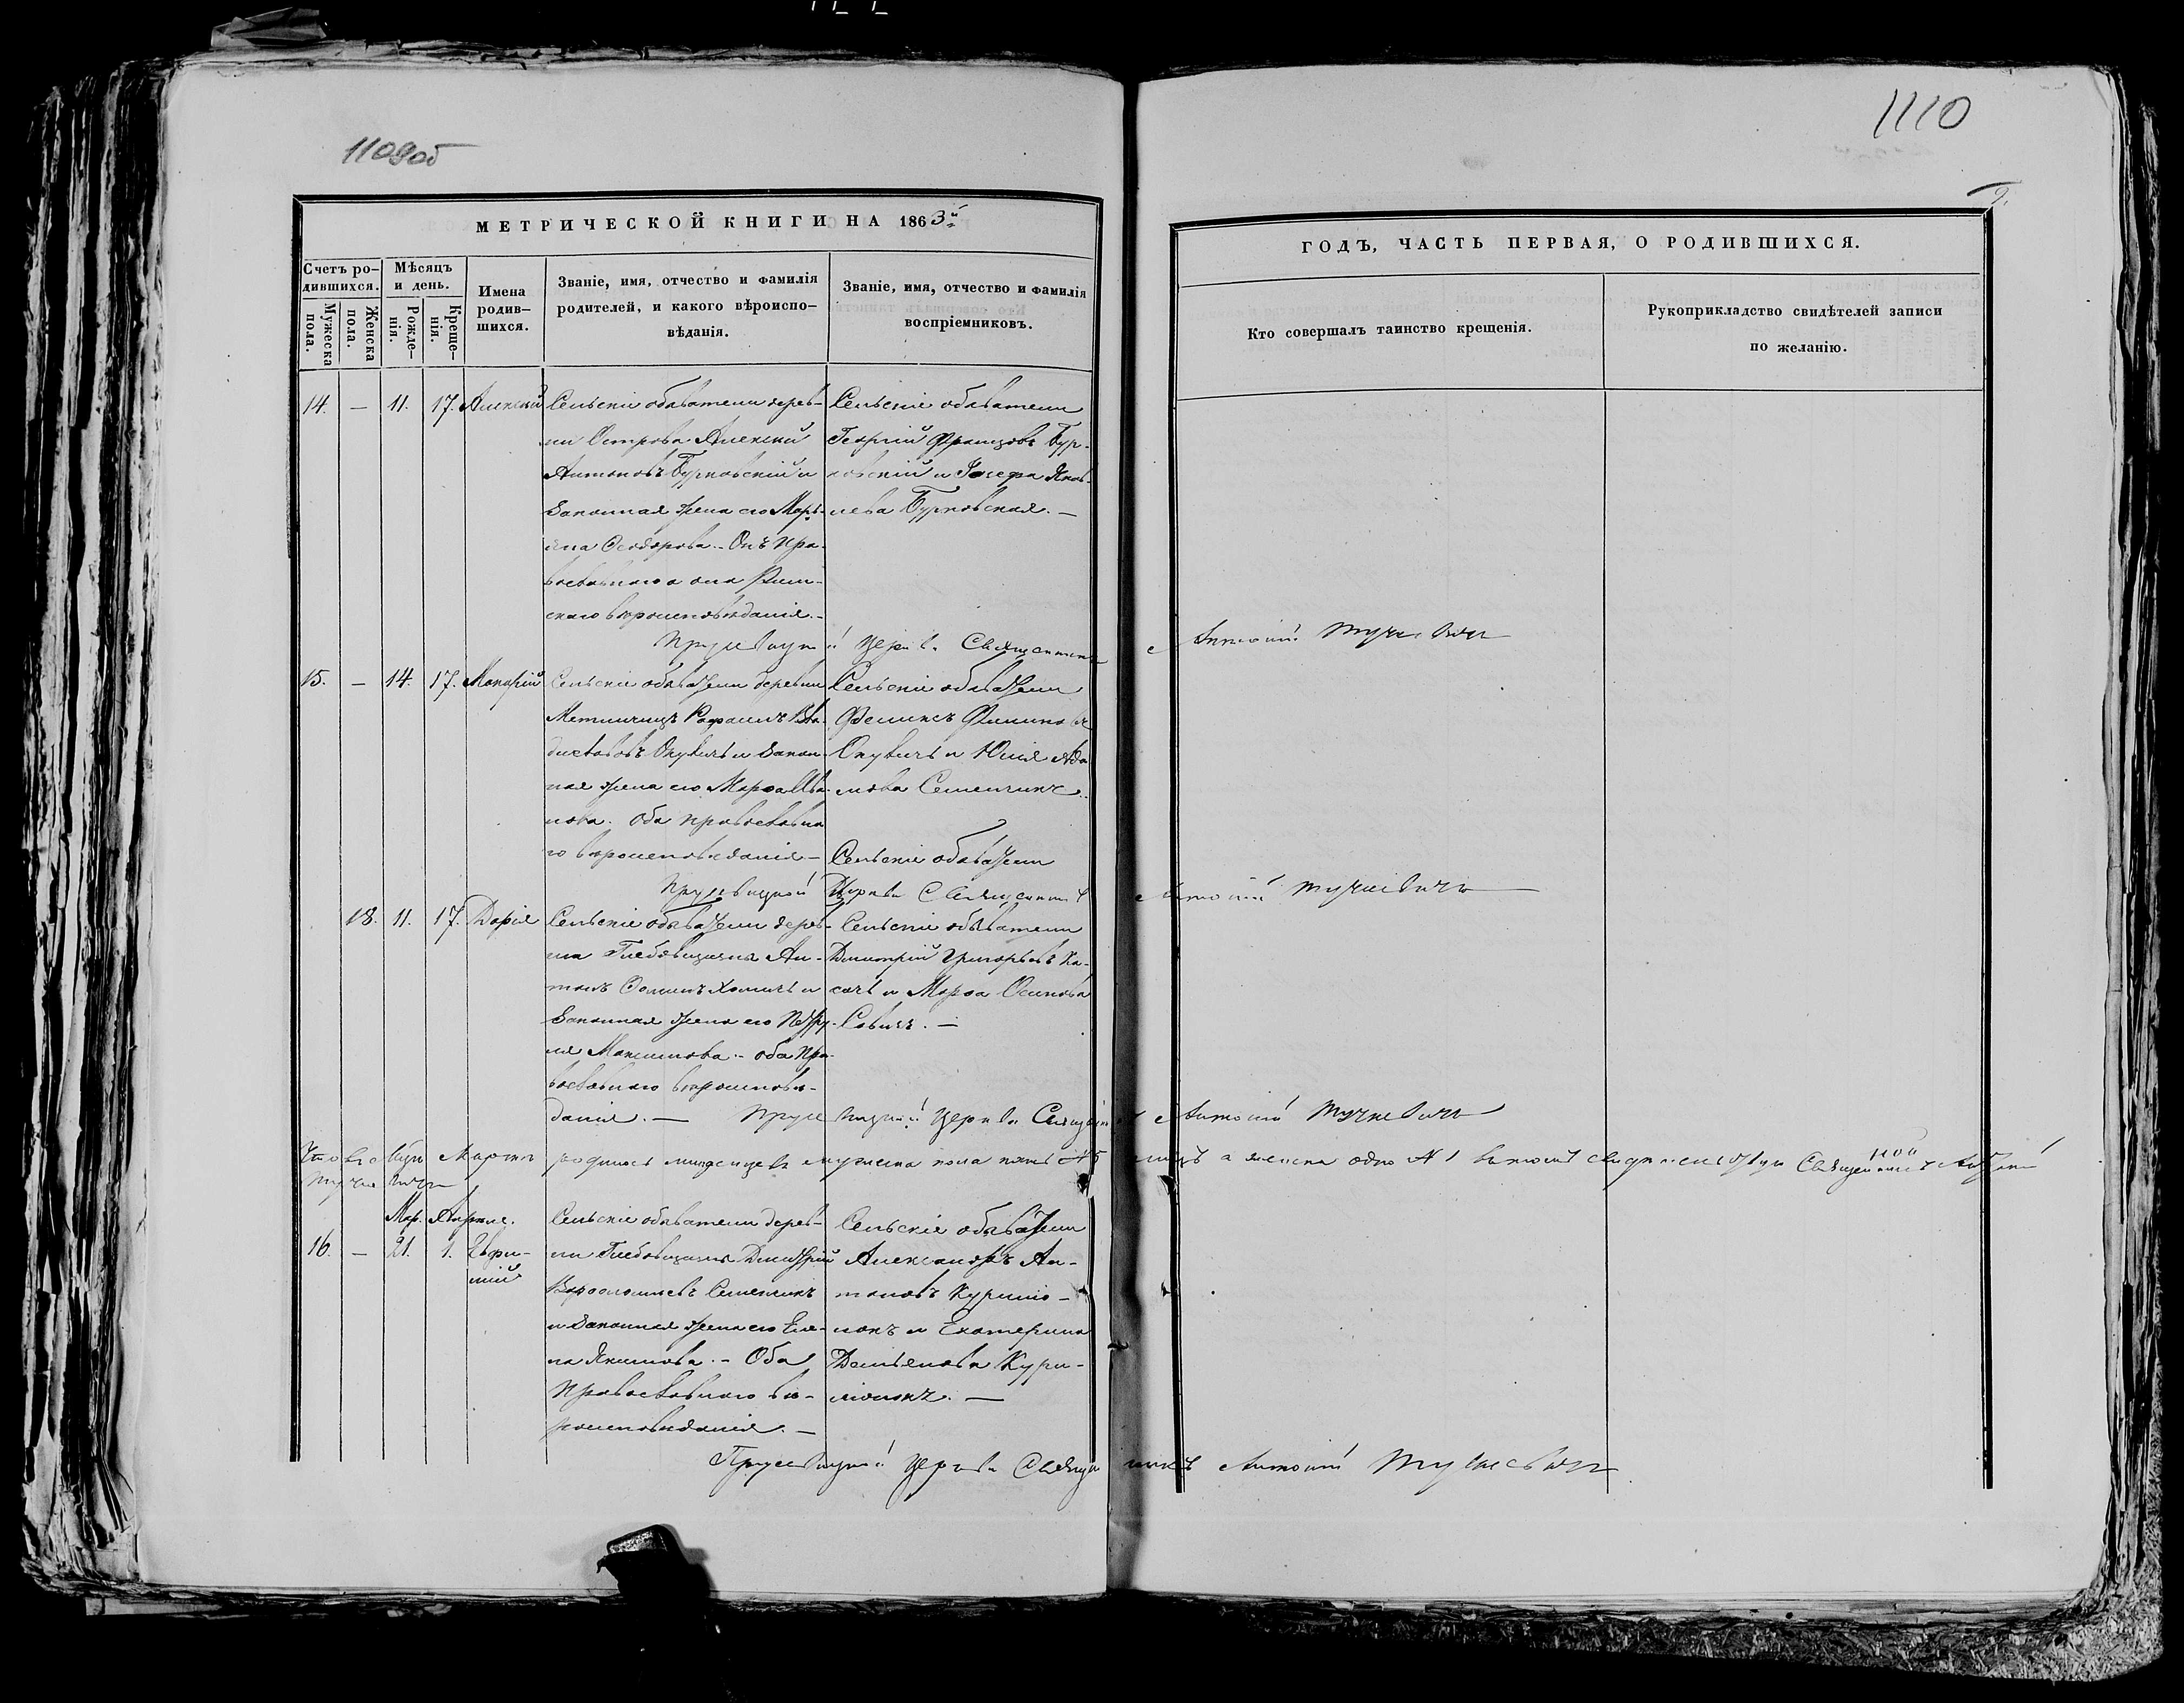 1109об
1110
9.
МЕТРИЧЕСКОЙ КНИГИ НА 1863й
ГОДЪ, ЧАСТЬ ПЕРВАЯ, О РОДИВШИХСЯ.
Счетъ ро-
дившихся.
Мужеска
пола.
Женска
пола.
Мѣсяцъ
и день.
Рожде-
нія.
Креще-
нія.
Имена
родив-
шихся.
Званіе, имя, отчество и фамилія
родителей, и какого вѣроиспо-
вѣданія.
Званіе, имя, отчество и фамилія
воспріемниковъ.
Кто совершалъ таинство крещенія.
Рукоприкладство свидѣтелей записи
по желанію.
14. — 11. 17. Алексій
Сельскіе обыватели дерев-
ни Острова Алексій
Антоновъ Бурковскій и
законная жена его Марь-
яна Ѳеодорова. - Онъ пра-
вославнаго а она Рим-
скаго вѣроисповѣданія. -
Сельскіе обыватели
Георгій Францовъ Бур-
ковскій и Іосефа Яков-
лева Бурковская. —
Церкви Священникъ Антоній Тучкевичъ
15. — 14. 17. Макарій
Сельскіе обыватели деревни
Метличицъ Рафаилъ Вла-
диславовъ Окуличъ и закон-
ная жена его Марѳа Ива-
нова. Оба православна
го вѣроисповѣданія —
Сельскіе обыватели
Феликсъ Филиповъ
Окуличъ и Юлія Ада
мова Семенчикъ.
Сельскіе обыватели
Церкви Священникъ Антоній Тучкевичъ
18. 11. 17. Дарія
Сельскіе обыватели дерев-
ни Глебовщизны Ан-
тонъ Хомичъ и
законная жена его Петру-
ля Максимова. - оба пра-
вославнаго вѣроисповѣ-
данія. —
Сельскіе обыватели
Димитрій Григорьевъ Ка-
сачъ и Марѳа Осипова
Савичъ. —
Церкви Священникъ Антоній Тучкевичъ
Что въ Марте родилось младенцевъ мужеска пола пять №5 а женска одно №1 въ томъ свидетельствую Священникъ Антоній
Тучкевичъ
Мар. Апрѣля.
16. — 21. 1. Евфи-
мій
Сельскіе обыватели дерев-
ни Глебовщизны Димитрій
Варѳоломѣевъ Семенчикъ
и законная жена его Еле-
на Якимова. - Оба
Православнаго вѣ-
роисповѣданія. —
Сельскіе обыватели
Александръ Ан-
тоновъ Курило-
нокъ и Екатерина
Демьянова Кури-
лионокъ. —
Церкви Священникъ Антоній Тучкевичъ